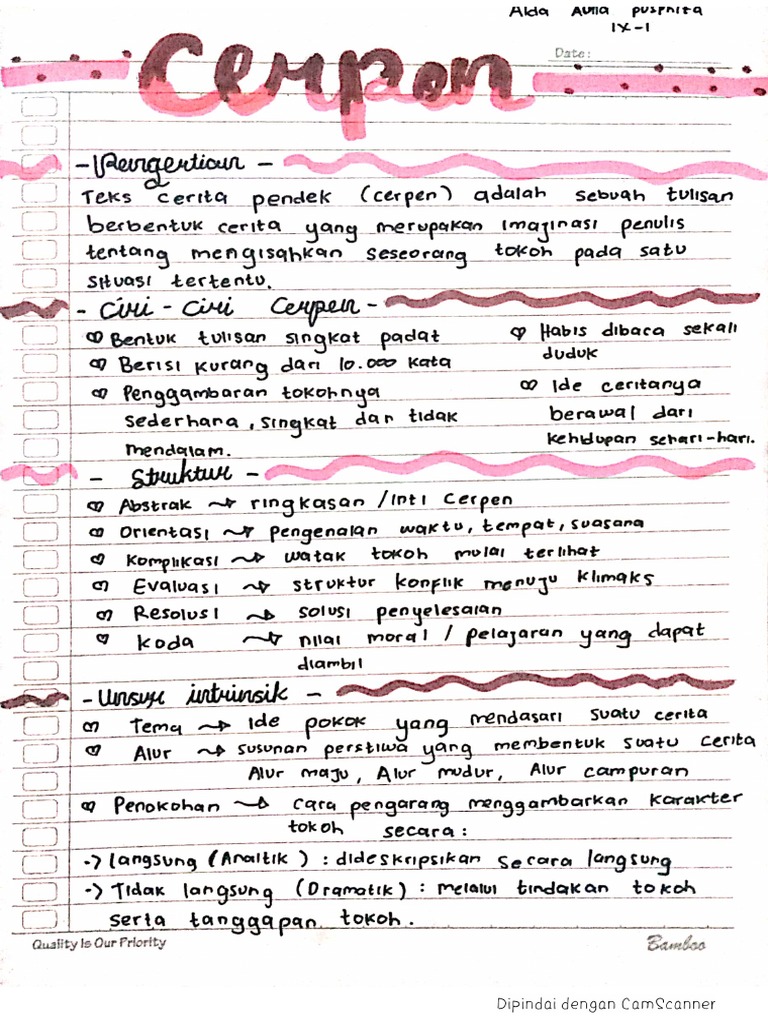 Alda Aulia puspita
IX-1
Date:
Cerpen
- Pengertian -
Teks cerita pendek (cerpen) adalah sebuah tulisan
berbentuk cerita yang merupakan imajinasi penulis
tentang mengisahkan seseorang tokoh pada satu
situasi tertentu.
- Ciri - Ciri Cerpen -
Bentuk tulisan singkat padat
Berisi kurang dari 10.000 kata
Penggambaran tokohnya
sederhana, singkat dan tidak
mendalam.
Habis dibaca sekali
duduk
Ide ceritanya
berawal dari
kehidupan sehari-hari.
- Struktur -
Abstrak → ringkasan / inti cerpen
Orientasi → pengenalan waktu, tempat, suasana
Komplikasi → watak tokoh mulai terlihat
Evaluasi → struktur konflik menuju klimaks
Resolusi → solusi penyelesaian
Koda → nilai moral / pelajaran yang dapat
diambil
- Unsur intrinsik -
Tema → Ide pokok yang mendasari suatu cerita
Alur → susunan perstiwa yang membentuk suatu cerita
Alur maju, Alur mudur, Alur campuran
Penokohan → cara pengarang menggambarkan karakter
tokoh secara :
-> langsung (Analtik) : dideskripsikan secara langsung
-> Tidak langsung (Dramatik) : melalui tindakan tokoh
serta tanggapan tokoh.
Quality Is Our Priority
Bamboo
Dipindai dengan CamScanner